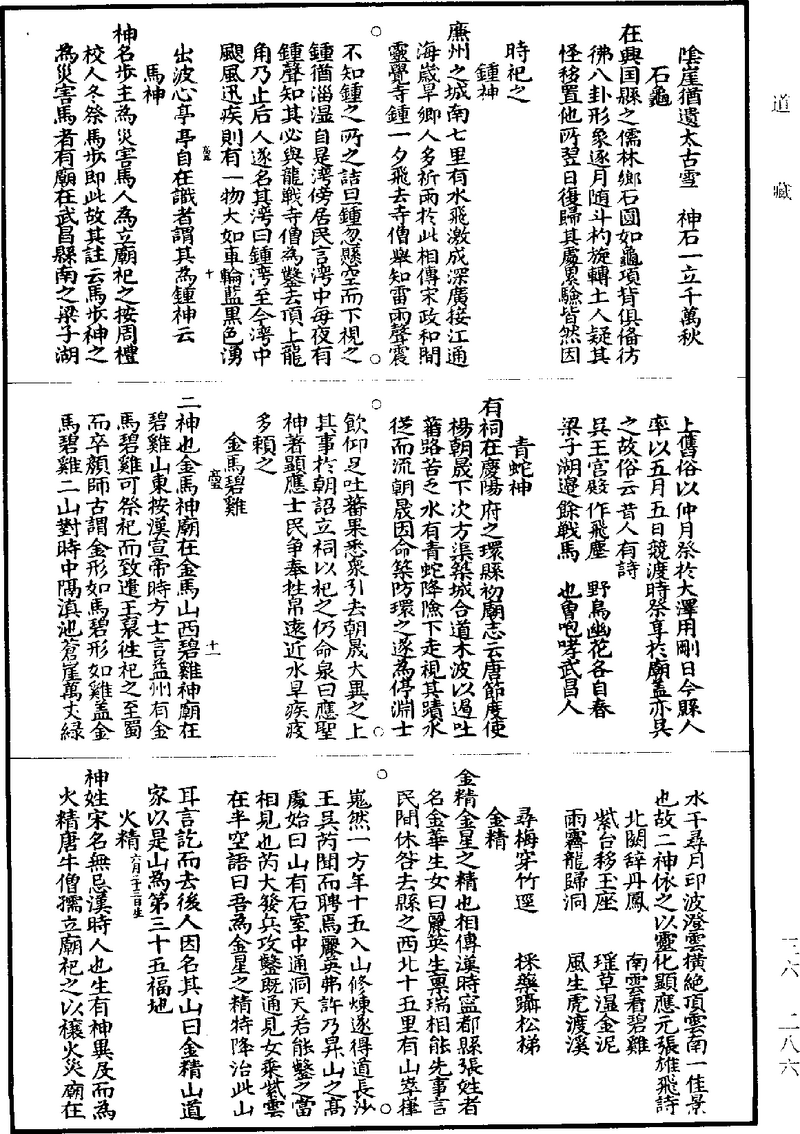 道藏
陰崖猶遺太古雪　神石一立千萬秋
石龜
在興国縣之儒林鄉石圓如龜項背俱俻彷
彿八卦形象逐月随斗杓旋轉土人疑其
怪移置他所翌日復歸其處累驗皆然因
時祀之
鍾神
廉州之城南七里有水飛激成深廣接江通
海歲旱鄉人多祈雨於此相傳宋政和間
靈覺寺鍾一夕飛去寺僧舉知雷雨聲震
不知鍾之所之詰旦鍾忽懸空而下視之
鍾猶淄湿自是灣傍居民言灣中每夜有
鍾聲知其必與龍戰寺僧為鑿去頂上龍
角乃止后人遂名其灣曰鍾灣至今灣中
颶風迅疾則有一物大如車輪藍黒色湧
出波心亭亭自在識者謂其為鍾神云
馬神
神名步主為災害馬人為立廟祀之按周禮
校人冬祭馬步即此故其註云馬步神之
為災害馬者有廟在武昌縣南之梁子湖
上舊俗以仲月祭於大澤用剛日今縣人
率以五月五日競渡時祭享於廟蓋亦吳
之故俗云昔人有詩
吳王宮殿作飛塵　野鳥幽花各自春
梁子湖邊餘戦馬　也曾咆哮武昌人
青蛇神
有祠在慶陽府之環縣初廟志云唐節度使
楊朝晟下次方渠築城合道木波以遏吐
蕃路苦乏水有青蛇降險下走視其蹟水
從而流朝晟因命築防環之遂為停淵士
飲仰足吐蕃果悉衆引去朝晟大異之上
其事於朝詔立祠以祀之仍命泉曰應聖
神著顯應士民争奉牲帛遠近水旱疾疫
多頼之
金馬碧雞
二神也金馬神廟在金馬山西碧雞神廟在
碧雞山東按漢宣帝時方士言益州有金
馬碧雞可祭祀而致遣王褒徃祀之至蜀
而卒顏師古謂金形如馬碧形如雞盖金
馬碧雞二山對時中隔滇池蒼崖萬丈緑
水千尋月印波澄雲橫絶頂雲南一佳景
也故二神依之以靈化顯應元張雄飛詩
北闕辞丹鳳　南雲看碧雞
紫台移玉座　瑶草湿金泥
雨霽龍歸洞　風生虎渡溪
尋梅穿竹逕　採藥躡松梯
金精
金精金星之精也相傳漢時寧都縣張姓者
名金華生女曰麗英生禀瑞相能先事言
民間休咎去縣之西北十五里有山崒嵂
嵬然一方年十五入山修煉遂得道長沙
王吳芮聞而聘焉麗英弗許乃昇山之髙
處始曰山有石室中通洞天若能鑿之當
相見也芮大發兵攻鑿既通見女乘紫雲
在半空語曰吾為金星之精特降治此山
耳言訖而去後人因名其山曰金精山道
家以是山為第三十五福地
火精 六月二十三日生
神姓宋名無忌漢時人也生有神異及而為
火精唐牛僧孺立廟祀之以禳火災廟在
三六　二八六